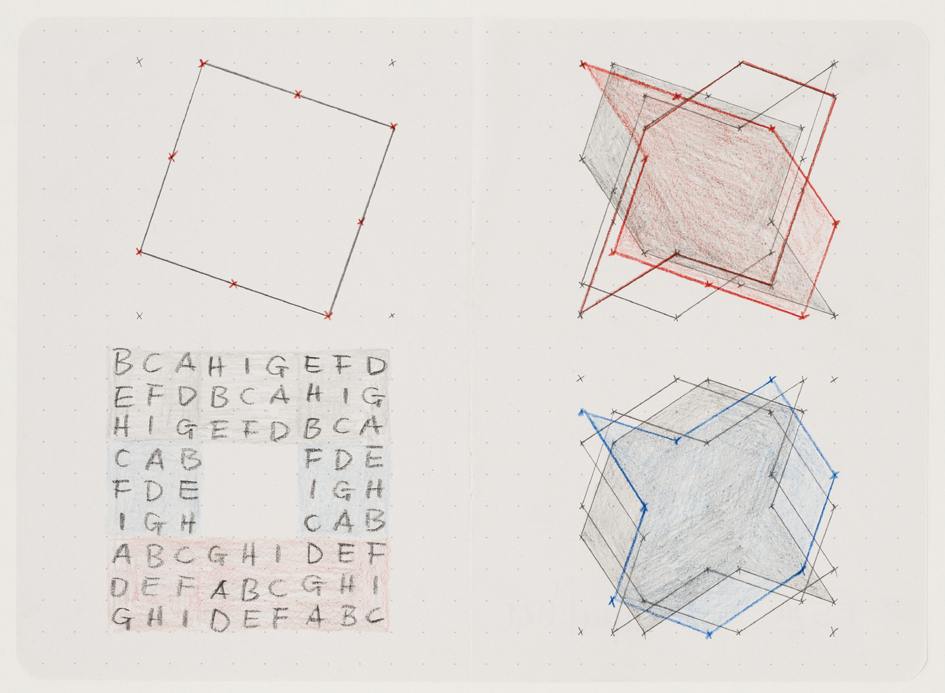 B C A H I G E F D
E F D B C A H I G
H I G E F D B C A
C A B F D E
F D E I G H
I G H C A B
A B C G H I D E F
D E F A B C G H I
G H I D E F A B C